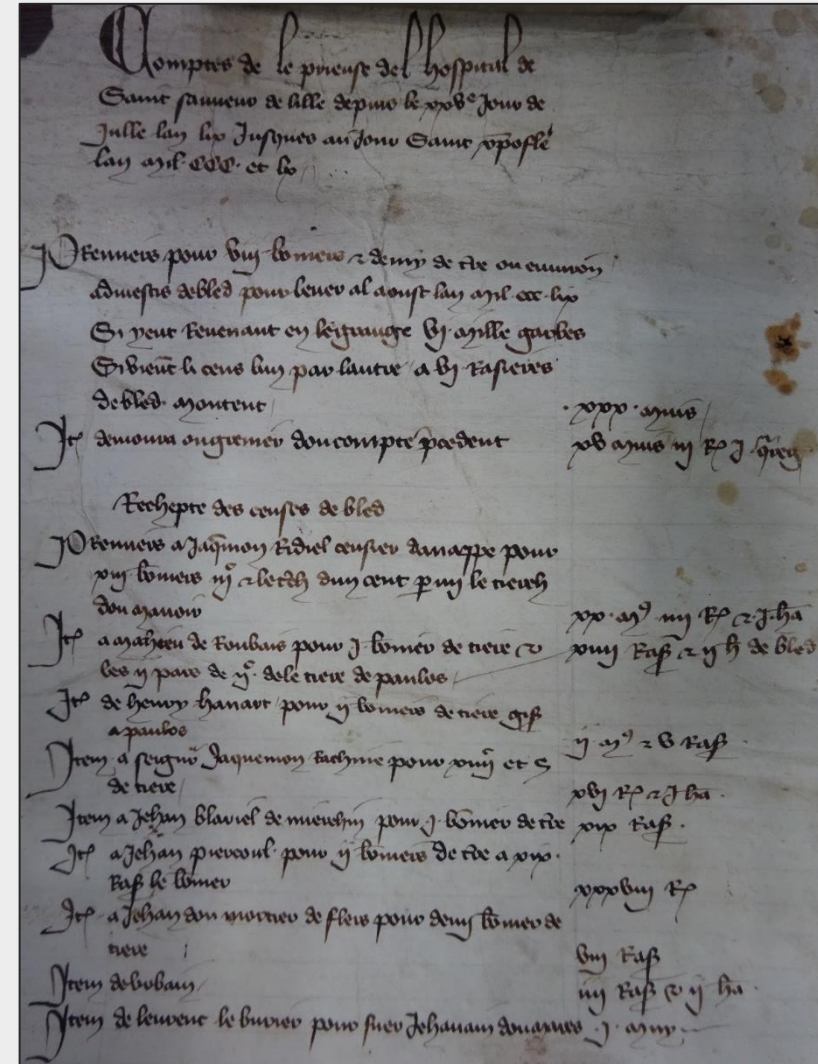 Comptes de le prieuse del hospital de
Saint sauveur de lille depuis le xxve Jour de
Julle lan lix Jusques au Jour Saint xpofle
lan mil CCC et lx
Premiers pour viii boniers & demy de tre ou environ
advestis de bled pour lever al aoust lan mil ccc lix
Si yeut Revenant en le grange vi mille garbes
Si vient li cens lun par lautre a vi Rasieres
de bled montent xxx muis
It demoura ou grenier dou compte pcedent xv muis iii R I
Rechepte des censes de bled
Premiers a Jaqmon Ridiel censier danappe pour
xiii boniers dun cent p le tierch
dou manoir xx m iiii R & I ha
It a mahieu de Roubais pour I bonier de tiere &
les ii pars de dele tiere de paulos xiiii Ras & ii h de bled
It de henry hanart pour ii boniers de tiere gis
a paulos ii m & v Ras
Item a seignr Jaquemon pour xiiii et
de tiere xvi R & I ha
Item a Jehan blariel de pour I bonier de tre xix Ras
It a Jehan piercoul pour ii boniers de tre a xix
Ras le bonier xxxviii R
It a Jehan dou mortier de fleis pour demi bonier de
tiere viii Ras
Item de bobain iiii Ras & ii ha
Item de leurent le burier pour suer Jehanain I muy